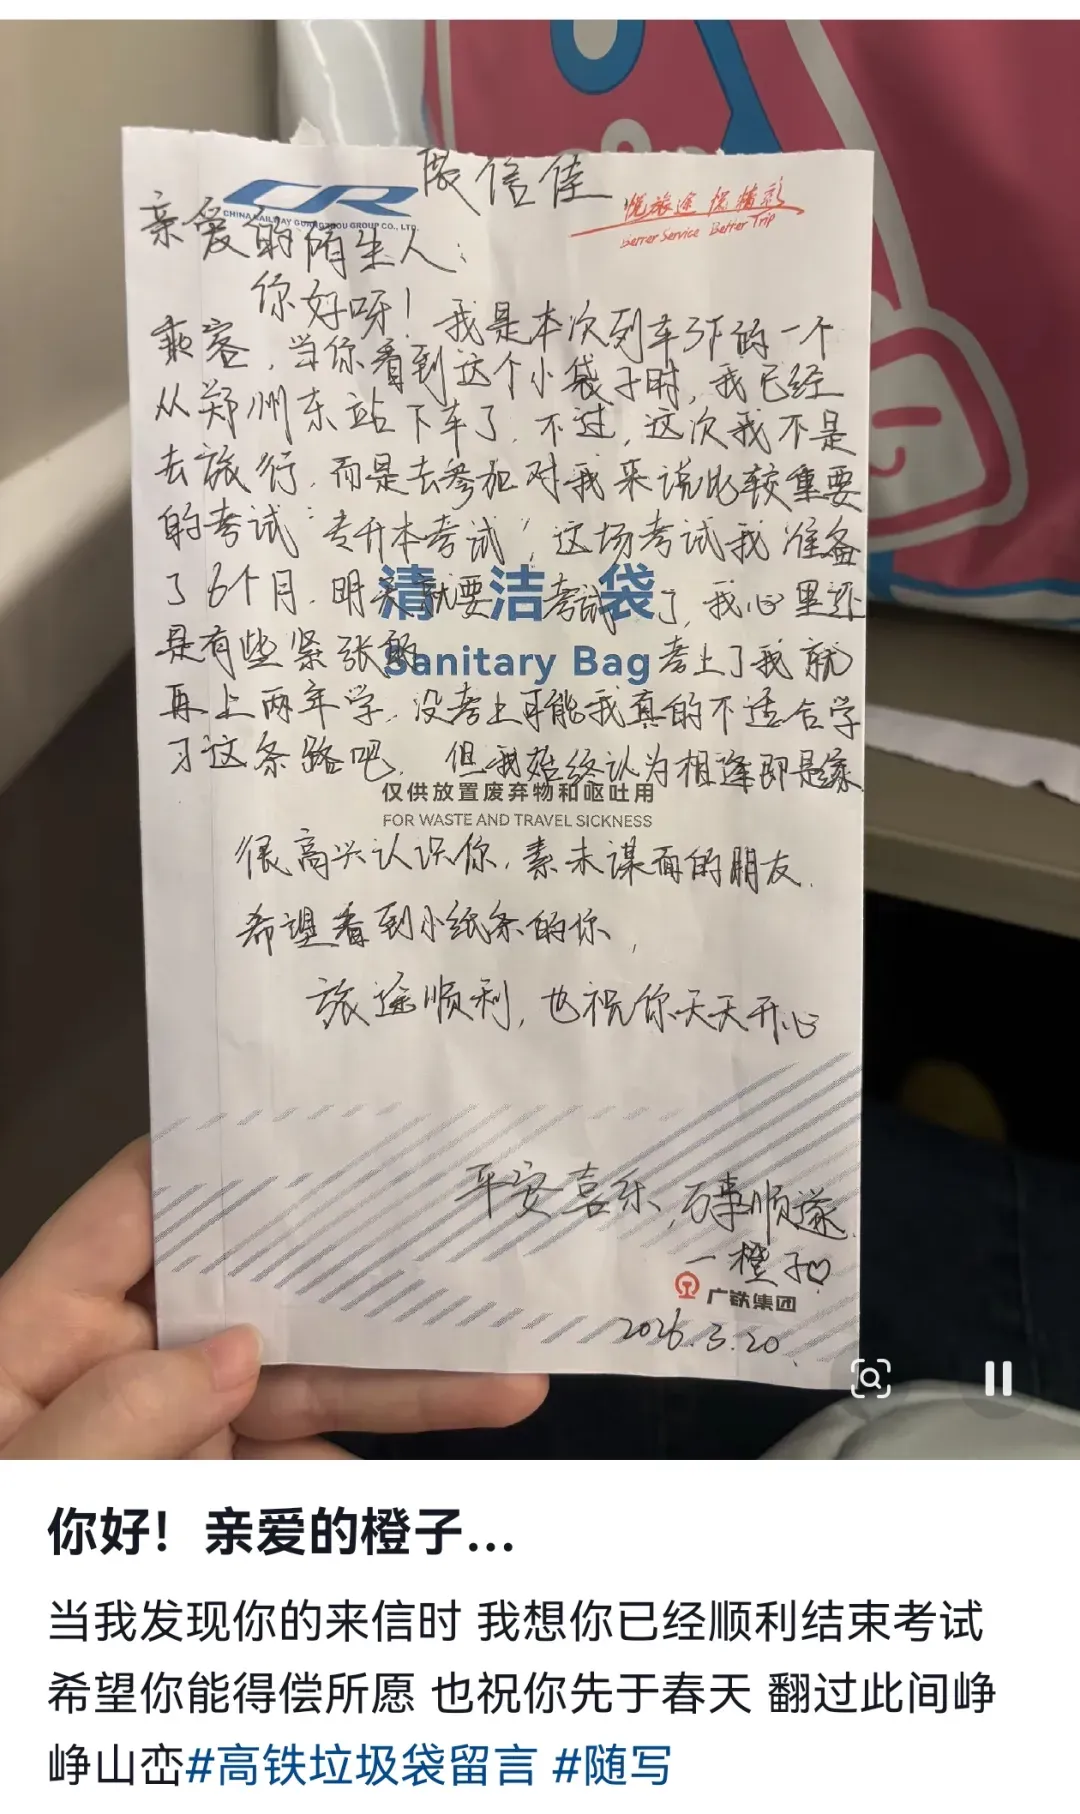 展信佳
CHINA RAILWAY GUANGZHOU GROUP CO., LTD.
悦旅途 悦精彩
Better Service Better Trip
亲爱的陌生人：
你好呀！我是本次列车3F的一个
乘客，当你看到这个小袋子时，我已经
从郑州东站下车了，不过，这次我不是
去旅行，而是去参加对我来说比较重要
的考试“专升本考试”，这场考试我准备
了6个月，明天就要考试了，我心里还
是有些紧张 考上了我就
再上两年学，没考上可能我真的不适合学
习这条路吧，但我始终认为相逢即是缘
清洁袋
Sanitary Bag
仅供放置废弃物和呕吐用
FOR WASTE AND TRAVEL SICKNESS
很高兴认识你，素未谋面的朋友，
希望看到小纸条的你，
旅途顺利，也祝你天天开心
平安喜乐，万事顺遂
—橙子♡
广铁集团
2026.3.20.
你好！亲爱的橙子...
当我发现你的来信时 我想你已经顺利结束考试
希望你能得偿所愿 也祝你先于春天 翻过此间峥
峥山峦#高铁垃圾袋留言 #随写